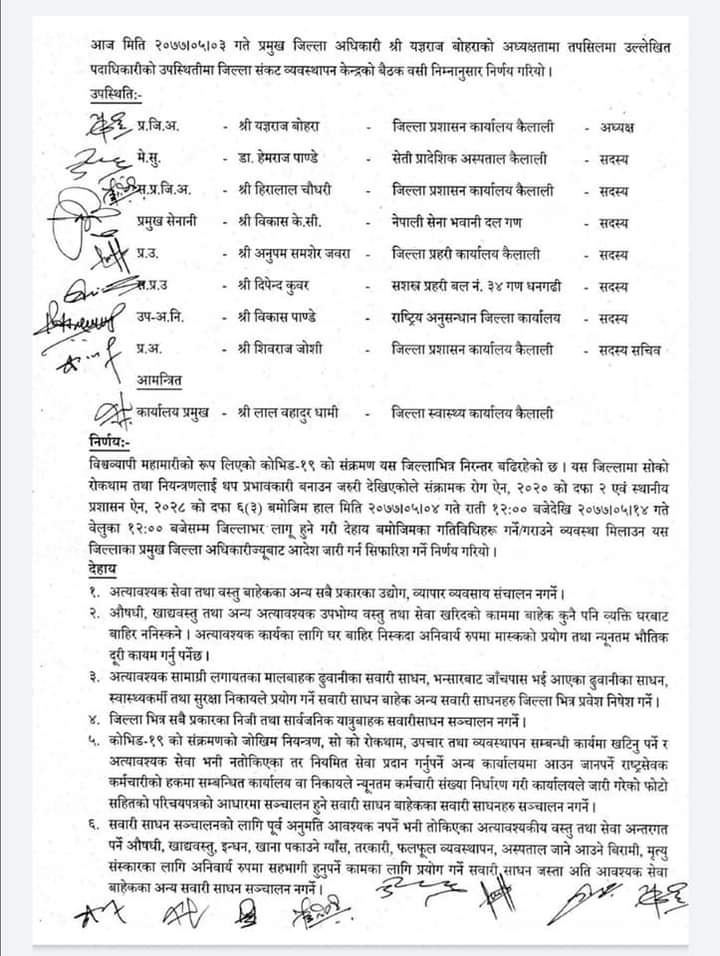 आज मिति २०७७।०५।०३ गते प्रमुख जिल्ला अधिकारी श्री यज्ञराज बोहराको अध्यक्षतामा तपसिलमा उल्लेखित
पदाधिकारीको उपस्थितीमा जिल्ला संकट व्यवस्थापन केन्द्रको बैठक वसी निम्नानुसार निर्णय गरियो ।
उपस्थिति:-
प्र.जि.अ. - श्री यज्ञराज बोहरा - जिल्ला प्रशासन कार्यालय कैलाली - अध्यक्ष
मे.सु. - डा. हेमराज पाण्डे - सेती प्रादेशिक अस्पताल कैलाली - सदस्य
स.प्र.जि.अ. - श्री हिरालाल चौधरी - जिल्ला प्रशासन कार्यालय कैलाली - सदस्य
प्रमुख सेनानी - श्री विकास के.सी. - नेपाली सेना भवानी दल गण - सदस्य
प्र.उ. - श्री अनुपम समशेर जवरा - जिल्ला प्रहरी कार्यालय कैलाली - सदस्य
स.प्र.उ - श्री दिपेन्द कुवर - सशस्त्र प्रहरी बल नं. ३४ गण धनगढी - सदस्य
उप-अ.नि. - श्री विकास पाण्डे - राष्ट्रिय अनुसन्धान जिल्ला कार्यालय - सदस्य
प्र.अ. - श्री शिवराज जोशी - जिल्ला प्रशासन कार्यालय कैलाली - सदस्य सचिव
आमन्त्रित
कार्यालय प्रमुख - श्री लाल वहादुर धामी - जिल्ला स्वास्थ्य कार्यालय कैलाली
निर्णय:-
विश्वव्यापी महामारीको रूप लिएको कोभिड-१९ को संक्रमण यस जिल्लाभित्र निरन्तर बढिरहेको छ । यस जिल्लामा सोको
रोकथाम तथा नियन्त्रणलाई थप प्रभावकारी बनाउन जरुरी देखिएकोले संक्रामक रोग ऐन, २०२० को दफा २ एवं स्थानीय
प्रशासन ऐन, २०२८ को दफा ६(३) बमोजिम हाल मिति २०७७।०५।०४ गते राती १२:०० बजेदेखि २०७७।०५।१४ गते
वेलुका १२:०० बजेसम्म जिल्लाभर लागू हुने गरी देहाय बमोजिमका गतिविधिहरु गर्ने/गराउने व्यवस्था मिलाउन यस
जिल्लाका प्रमुख जिल्ला अधिकारीज्यूबाट आदेश जारी गर्न सिफारिश गर्ने निर्णय गरियो ।
देहाय
१. अत्यावश्यक सेवा तथा वस्तु बाहेकका अन्य सबै प्रकारका उद्योग, व्यापार व्यवसाय संचालन नगर्ने ।
२. औषधी, खाद्यवस्तु तथा अन्य अत्यावश्यक उपभोग्य वस्तु तथा सेवा खरिदको काममा बाहेक कुनै पनि व्यक्ति घरबाट
बाहिर ननिस्कने । अत्यावश्यक कार्यका लागि घर बाहिर निस्कदा अनिवार्य रुपमा मास्कको प्रयोग तथा न्यूनतम भौतिक
दूरी कायम गर्नु पर्नेछ ।
३. अत्यावश्यक सामाग्री लगायतका मालबाहक ढुवानीका सवारी साधन, भन्सारबाट जाँचपास भई आएका ढुवानीका साधन,
स्वास्थ्यकर्मी तथा सुरक्षा निकायले प्रयोग गर्ने सवारी साधन बाहेक अन्य सवारी साधनहरु जिल्ला भित्र प्रवेश निषेश गर्ने ।
४. जिल्ला भित्र सबै प्रकारका निजी तथा सार्वजनिक यात्रुबाहक सवारीसाधन सञ्चालन नगर्ने ।
५. कोभिड-१९ को संक्रमणको जोखिम नियन्त्रण, सो को रोकथाम, उपचार तथा व्यवस्थापन सम्बन्धी कार्यमा खटिनु पर्ने र
अत्यावश्यक सेवा भनी नतोकिएका तर नियमित सेवा प्रदान गर्नुपर्ने अन्य कार्यालयमा आउन जानपर्ने राष्ट्रसेवक
कर्मचारीको हकमा सम्बन्धित कार्यालय वा निकायले न्यूनतम कर्मचारी संख्या निर्धारण गरी कार्यालयले जारी गरेको फोटो
सहितको परिचयपत्रको आधारमा सञ्चालन हुने सवारी साधन बाहेकका सवारी साधनहरु सञ्चालन नगर्ने ।
६. सवारी साधन सञ्चालनको लागि पूर्व अनुमति आवश्यक नपर्ने भनी तोकिएका अत्यावश्यकीय वस्तु तथा सेवा अन्तरगत
पर्ने औषधी, खाद्यवस्तु, इन्धन, खाना पकाउने ग्याँस, तरकारी, फलफूल व्यवस्थापन, अस्पताल जाने आउने बिरामी, मृत्यु
संस्कारका लागि अनिवार्य रुपमा सहभागी हुनुपर्ने कामका लागि प्रयोग गर्ने सवारी साधन जस्ता अति आवश्यक सेवा
बाहेकका अन्य सवारी साधन सञ्चालन नगर्ने ।